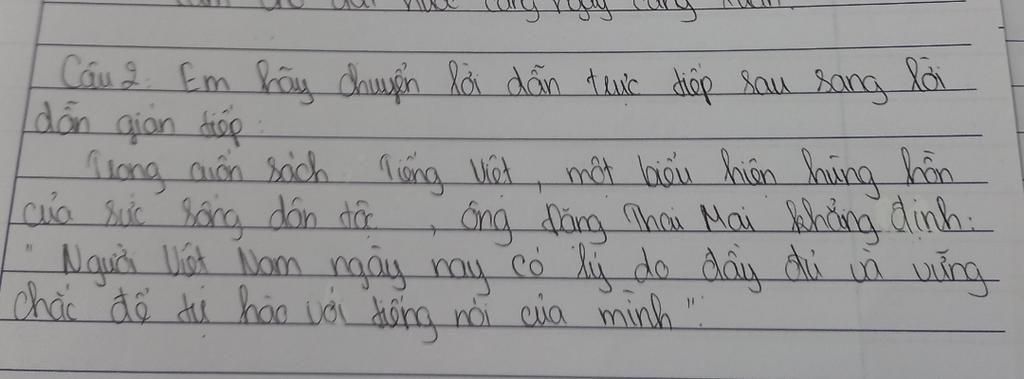 làm cho đất nước càng ngày càng xuân.
Câu 2: Em hãy chuyển lời dẫn trực tiếp sau sang lời
dẫn gián tiếp:
Trong cuốn sách Tiếng Việt, một biểu hiện hùng hồn
của sức sống dân tộc, ông Đặng Thai Mai khẳng định:
"Người Việt Nam ngày nay có lý do đầy đủ và vững
chắc để tự hào với tiếng nói của mình".